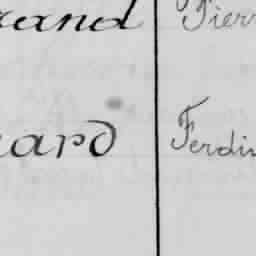 rand Pierr
card Ferdin